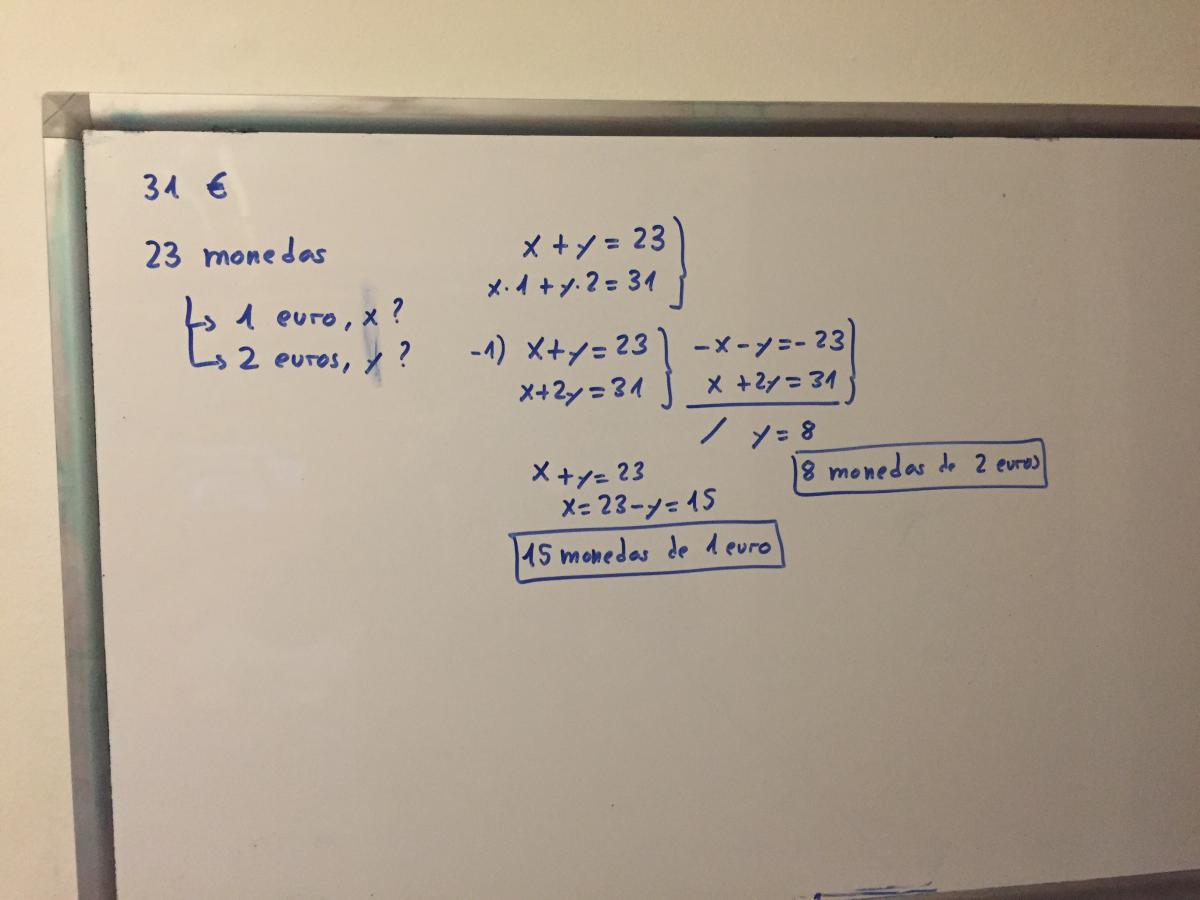 31 €
23 monedas
1 euro, x ?
2 euros, y ?
x + y = 23
x·1 + y·2 = 31
-1) x+y = 23
x+2y = 31
-x-y=-23
x +2y = 31
/ y = 8
8 monedas de 2 euros
x + y = 23
x = 23 - y = 15
15 monedas de 1 euro